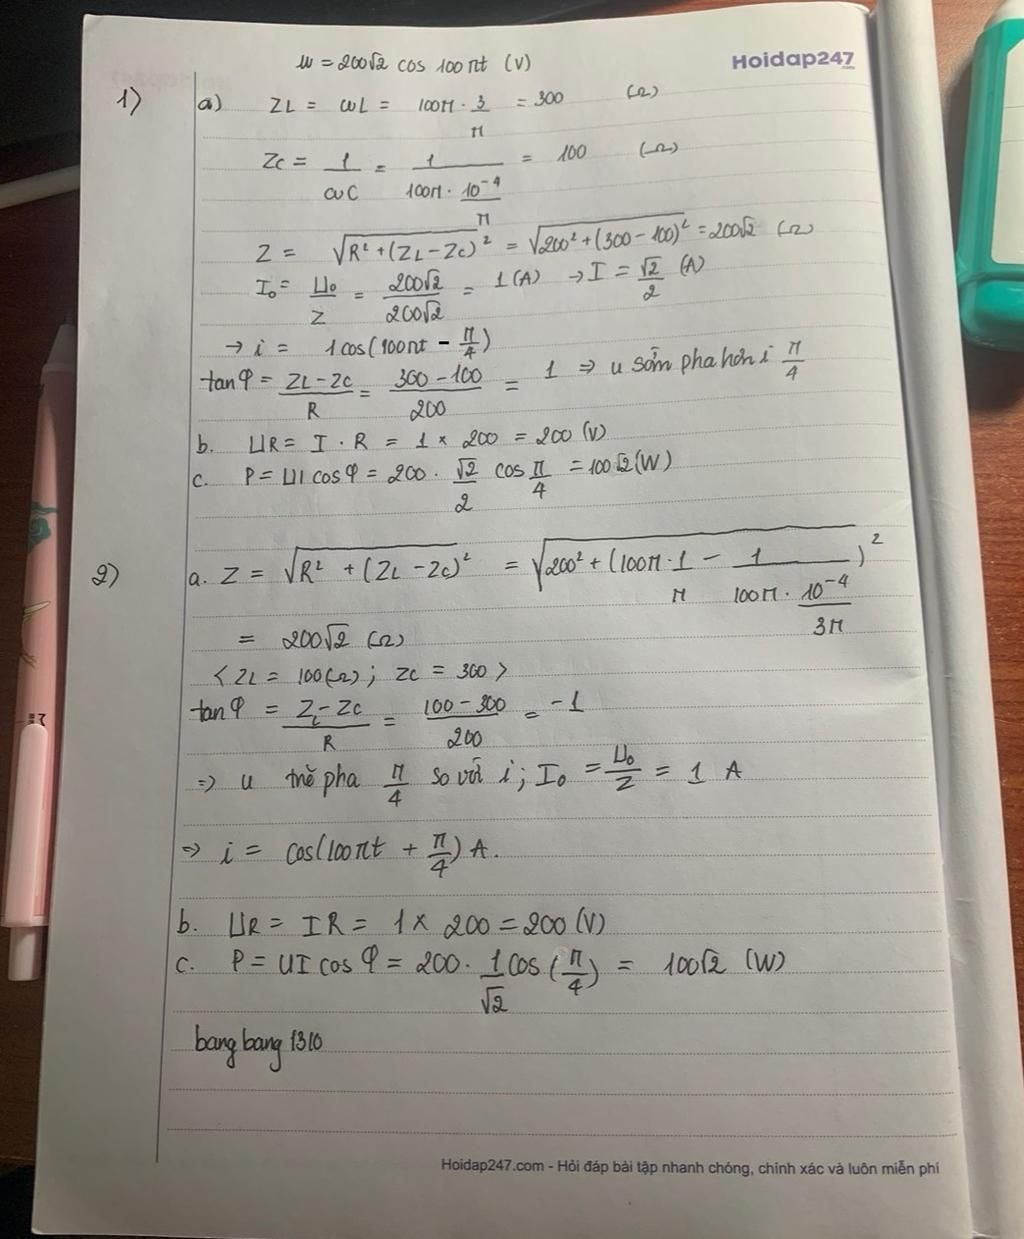 u = 200√2 cos 100πt (V)
Hoidap247
1) a) ZL = ωL = 100π · 3/π = 300 (Ω)
Zc = 1/ωC = 1/(100π · 10⁻⁴/π) = 100 (Ω)
Z = √(R² + (ZL - Zc)²) = √(200² + (300 - 100)²) = 200√2 (Ω)
I₀ = U₀/Z = 200√2/200√2 = 1 (A) → I = √2/2 (A)
→ i = 1cos(100πt - π/4)
tanφ = (ZL - Zc)/R = (300 - 100)/200 = 1 ⇒ u sớm pha hơn i π/4
b. UR = I · R = 1 × 200 = 200 (V)
c. P = UI cos φ = 200 · √2/2 cos π/4 = 100√2 (W)
2) a. Z = √(R² + (ZL - Zc)²) = √(200² + (100π · 1/π - 1/(100π · 10⁻⁴/3π))²)
= 200√2 (Ω)
< ZL = 100 (Ω) ; Zc = 300 >
tanφ = (ZL - Zc)/R = (100 - 300)/200 = -1
⇒ u trễ pha π/4 so với i ; I₀ = U₀/Z = 1 A
⇒ i = cos(100πt + π/4) A.
b. UR = IR = 1 × 200 = 200 (V)
c. P = UI cos φ = 200 · 1/√2 cos (π/4) = 100√2 (W)
bangbang1310
Hoidap247.com - Hỏi đáp bài tập nhanh chóng, chính xác và luôn miễn phí